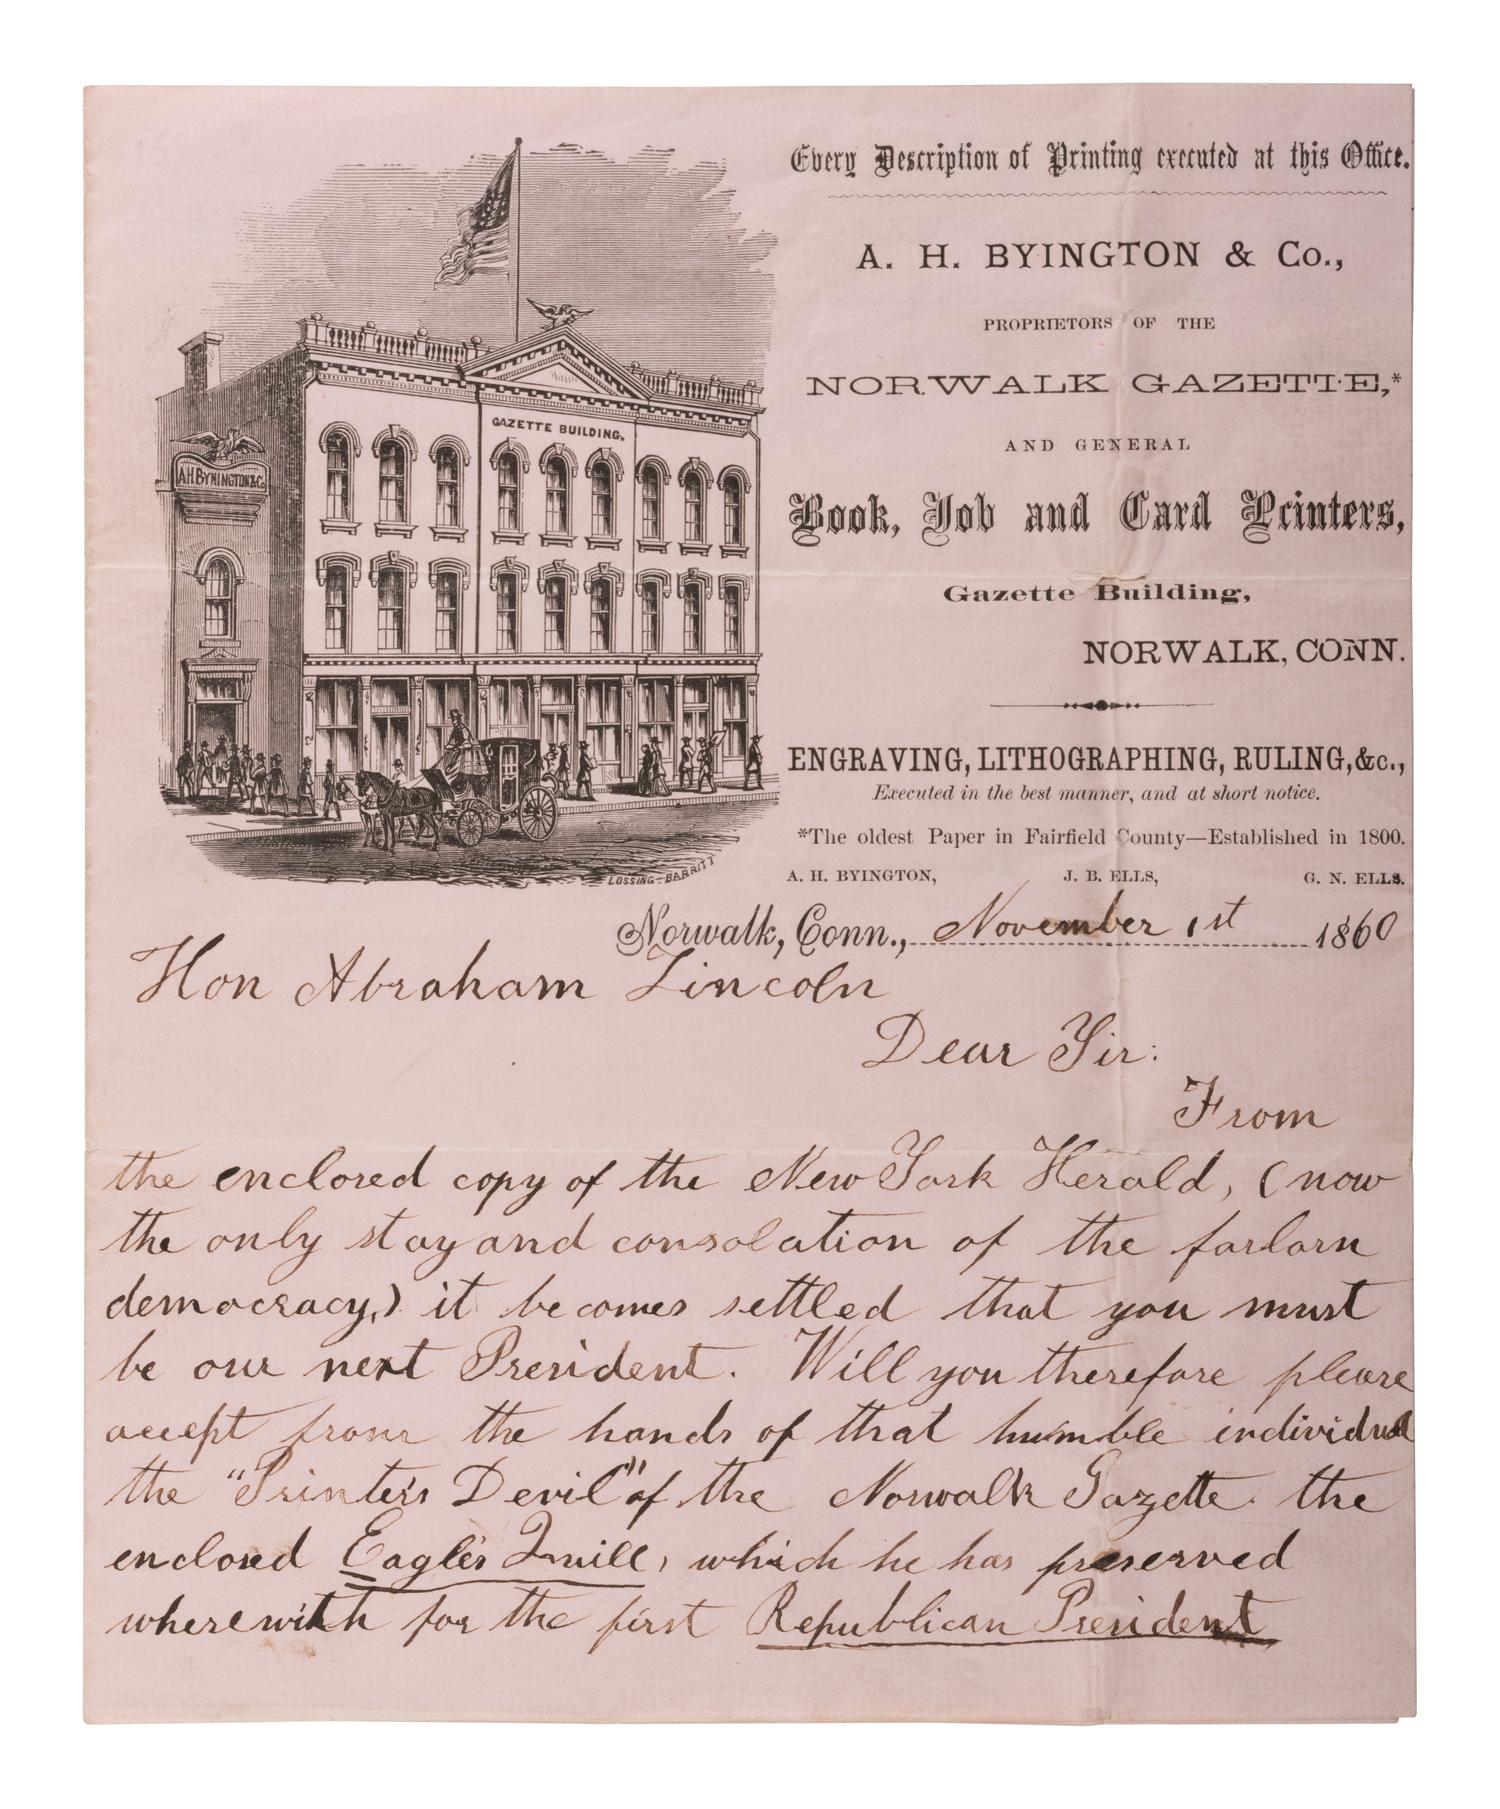 Every Description of Printing executed at this Office.
A. H. BYINGTON & Co.,
PROPRIETORS OF THE
NORWALK GAZETTE,*
AND GENERAL
Book, Job and Card Printers,
Gazette Building,
NORWALK, CONN.
ENGRAVING, LITHOGRAPHING, RULING, &c.,
Executed in the best manner, and at short notice.
*The oldest Paper in Fairfield County—Established in 1800.
A. H. BYINGTON, J. B. ELLS, G. N. ELLS.
GAZETTE BUILDING.
A.H. BYNINGTON & Co
LOSSING-BARRITT
Norwalk, Conn., November 1st 1860
Hon Abraham Lincoln
Dear Sir:
From
the enclosed copy of the New York Herald, (now
the only stay and consolation of the forlorn
democracy,) it becomes settled that you must
be our next President. Will you therefore please
accept from the hands of that humble individual
the "Printer's Devil" of the Norwalk Gazette the
enclosed Eagle's Quill, which he has preserved
wherewith for the first Republican President